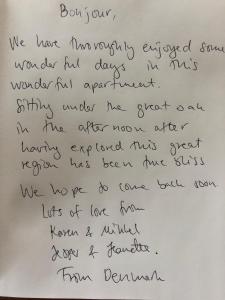 Bonjour,
We have thoroughly enjoyed some
wonderful days in this
wonderful apartment.
Sitting under the great oak
in the afternoon after
having explored this great
region has been true bliss
We hope to come back soon
Lots of love from
Karen & Mikkel
Jesper & Jeanette.
From Denmark